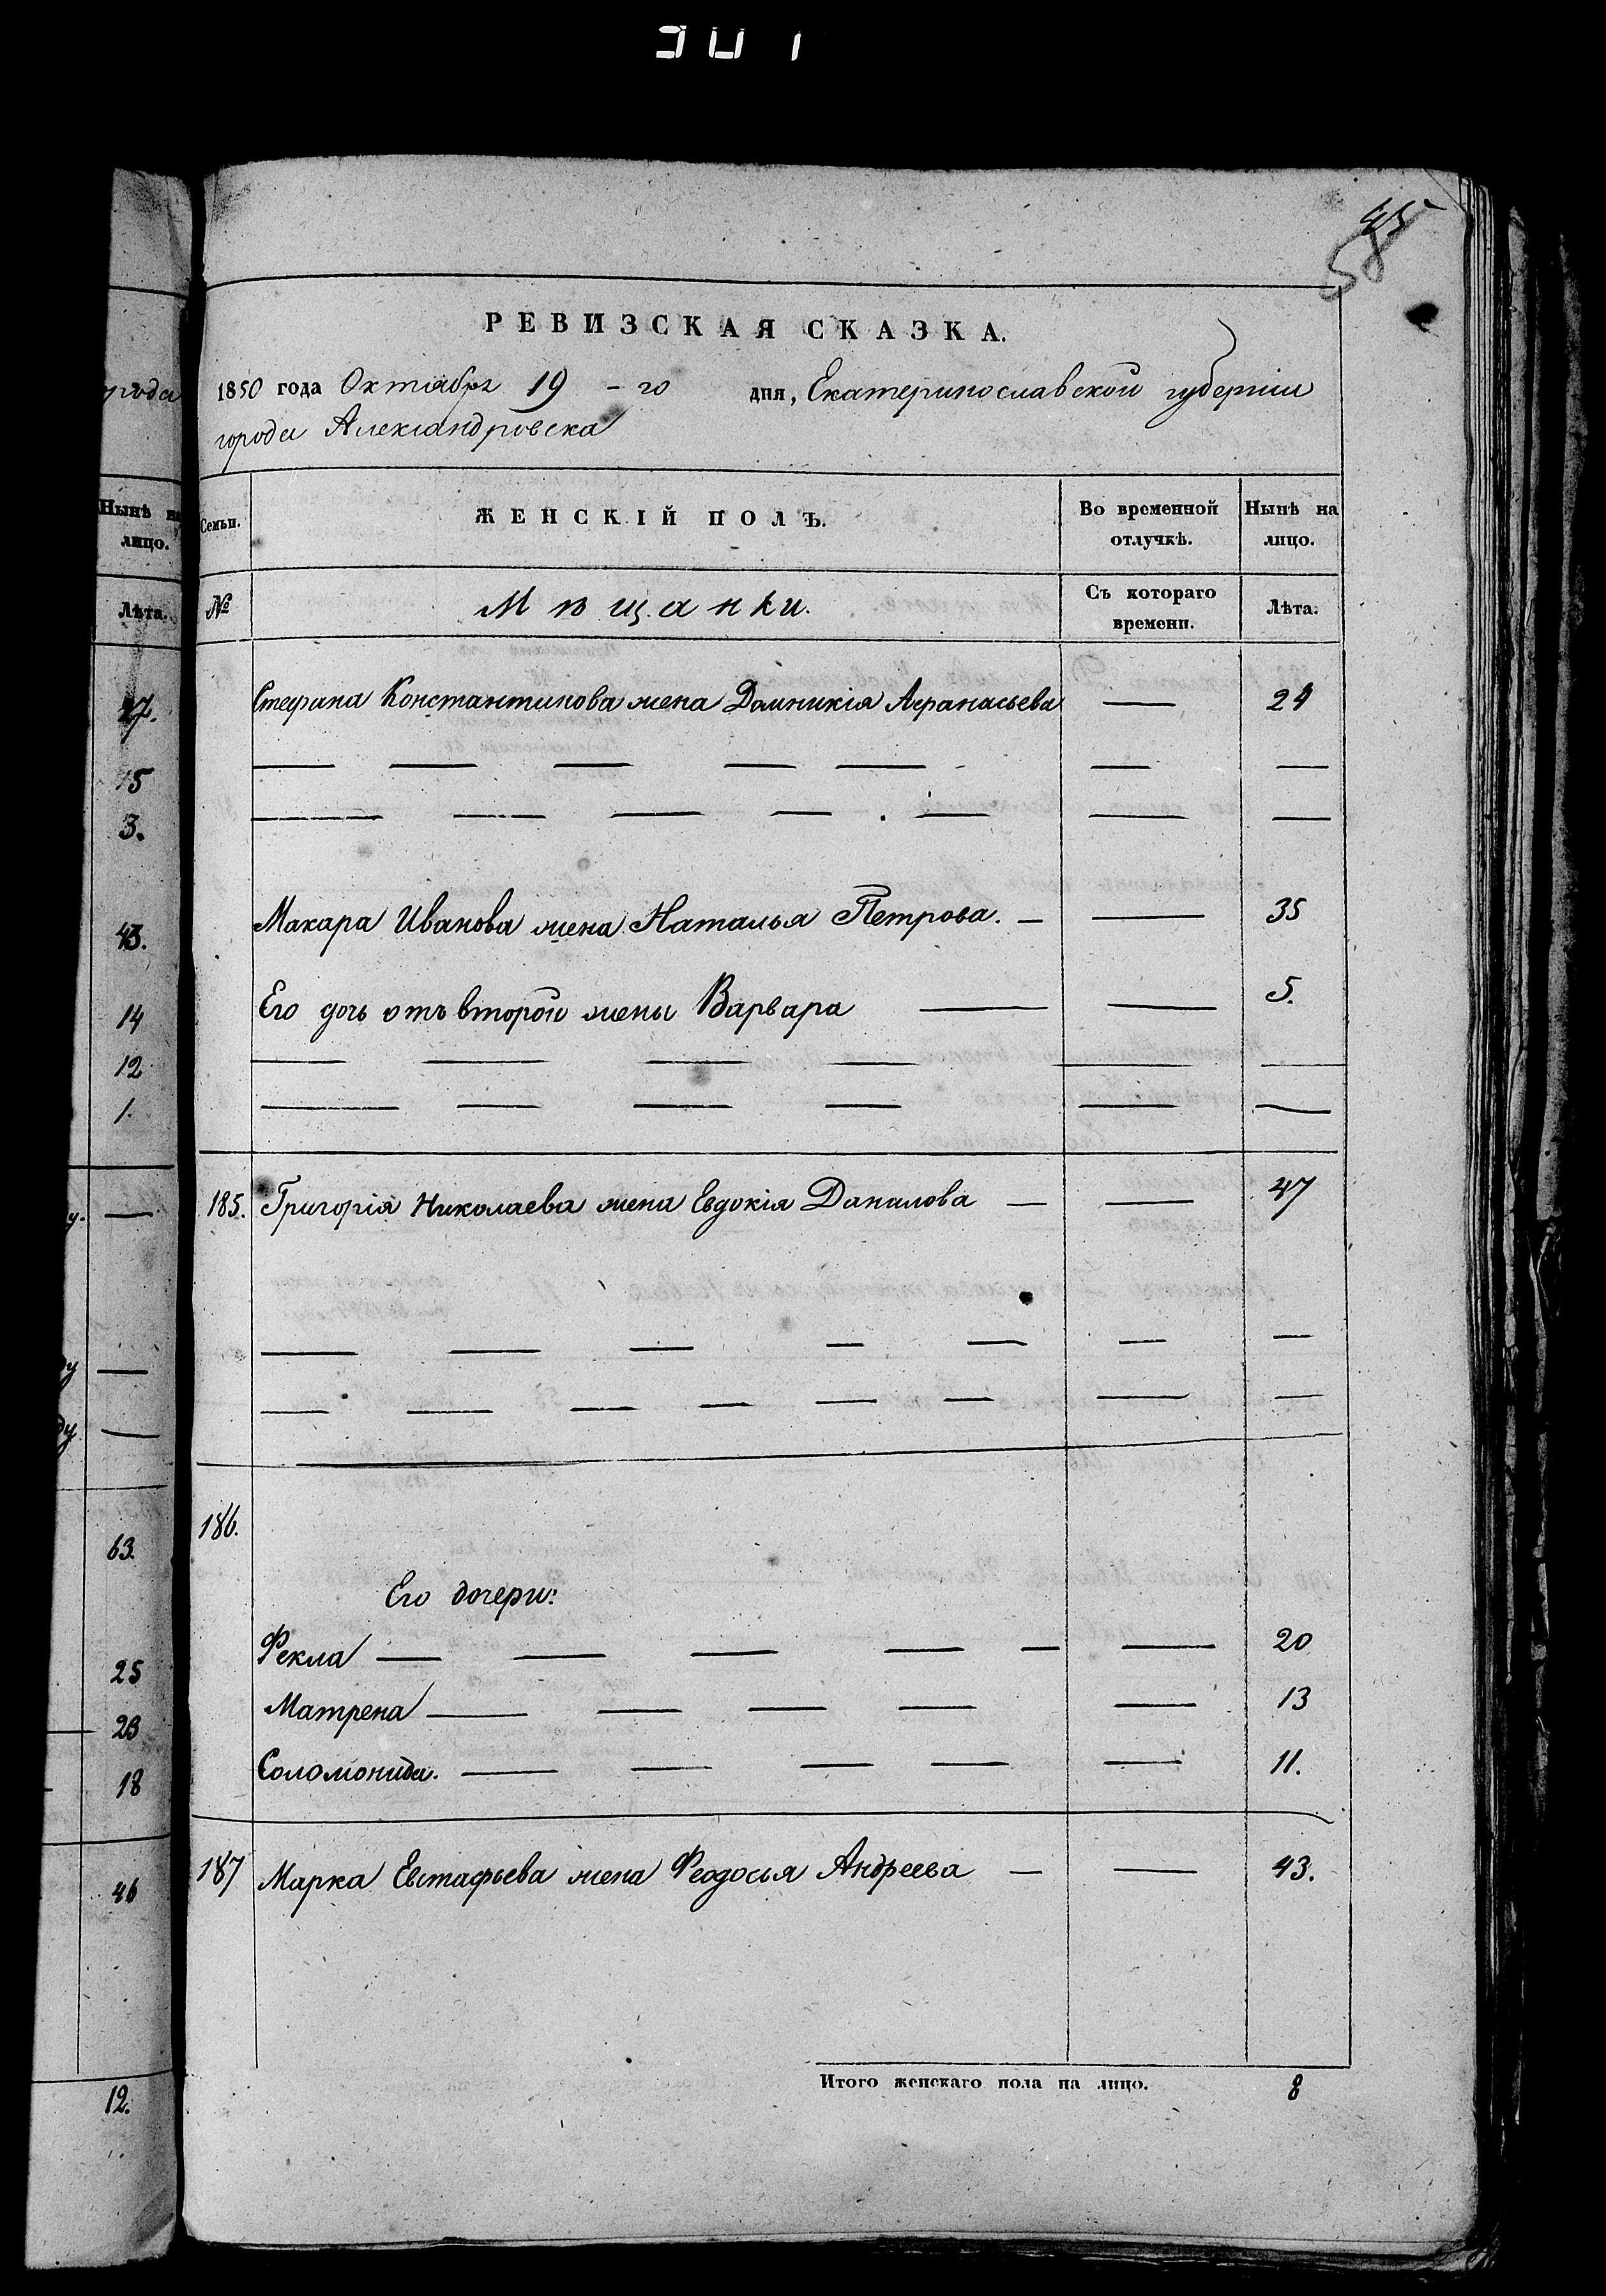 45
58
РЕВИЗСКАЯ СКАЗКА.
1850 года Октября 19 - го дня, Екатеринославской губерніи
города Александровска
Семьи. ЖЕНСКІЙ ПОЛЪ. Во временной отлучкѣ. Нынѣ на лицо.
№ Мѣщанки. Съ котораго времени. Лѣта.
Стефана Константинова жена Домникія Афанасьева — 24
— — — — — — —
— — — — — — —
Макара Иванова жена Наталья Петрова. — — 35
Его дочь отъ второй жены Варвара — — 5.
— — — — — —
— — — — — —
185. Григорія Николаева жена Евдокія Данилова — — 47
— — — — — — —
— — — — — — — —
186.
Его дочери:
Фекла — — — — — — 20
Матрена — — — — — 13
Соломонида. — — — — — 11.
187 Марка Евстафьева жена Феодосья Андреева — — 43.
Итого женскаго пола на лицо. 8
города
Нынѣ на
лицо.
Лѣта.
27.
15
3.
43.
14
12
1.
у. —
ду —
ду —
63.
25
23
18
46
12.